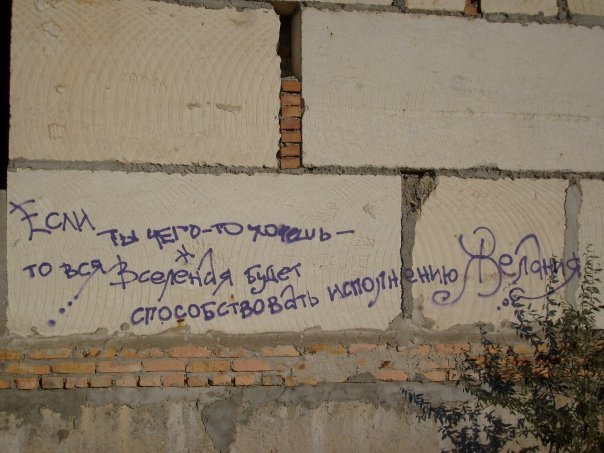 Если ты чего-то хочешь—
то вся Вселеная будет
способствовать исполнению Желания